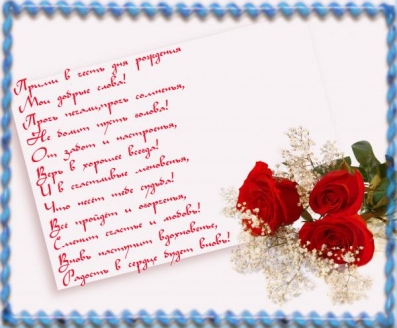 Прими в честь дня рождения
Мои добрые слова!
Прочь печали, прочь сомненья,
Не болит пусть голова!
От забот и настроенья,
Верь в хорошее всегда!
И в счастливые мгновенья,
Что несет тебе судьба!
Все пройдет и огорченья,
Сменит счастье и любовь!
Вновь наступит вдохновенье,
Радость в сердце будет вновь!